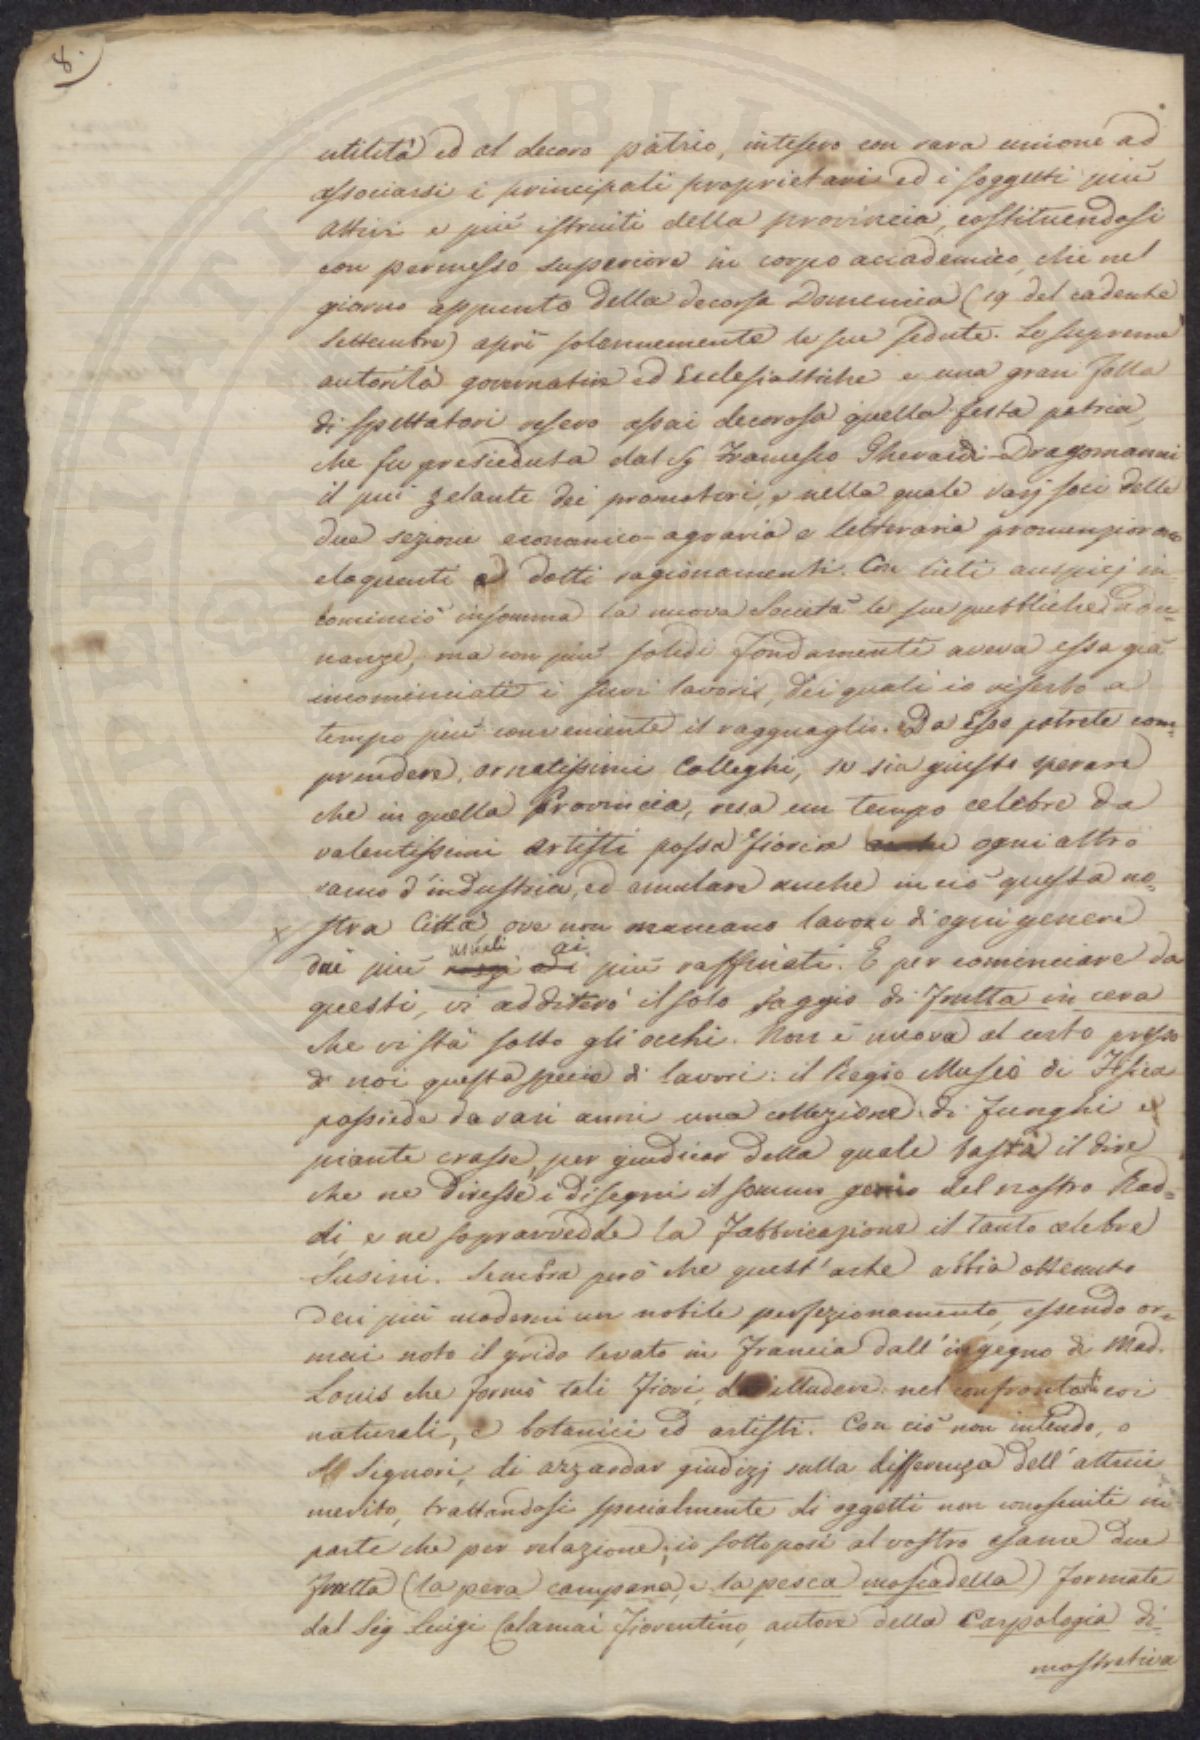 8.
utilità ed al decoro patrio, intesero con rara unione ad
associarsi i principali proprietari ed i soggetti più
attivi e più istruiti della provincia, costituendosi
con permesso superiore in corpo accademico, che nel
giorno appunto della decorsa Domenica (19 del cadente
Settembre) aprì solennemente le sue sedute. Le supreme
autorità governative ed Ecclesiastiche e una gran folla
di spettatori resero assai decorosa quella festa patria,
che fu presieduta dal Sg Francesco Gherardi-Dragomanni
il più zelante dei promotori, e nella quale varj soci delle
due sezioni economico-agraria e letteraria pronunziorono
eloquenti e dotti ragionamenti. Con lieti auspicj in-
cominciò insomma la nuova Società le sue pubbliche adu-
nanze, ma con più solidi fondamenti aveva essa già
incominciati i suoi lavori, dei quali io riserbo a
tempo più conveniente il ragguaglio. Da Esso potrete com-
prendere, ornatissimi Colleghi, se sia giusto sperare
che in quella Provincia, resa un tempo celebre da
valentissimi artisti possa fiorire anche ogni altro
ramo d'industria, ed emulare anche in ciò questa no-
stra Città ove non mancano lavori di ogni genere
usuali ai
dai più rozzi ai più raffinati. E per cominciare da
questi, vi additerò il solo saggio di frutta in cera
che vi stà sotto gli occhi. Non è nuova al certo presso
di noi questa specie di lavori: il Regio Museo di Fisica
possiede da vari anni una collezione di funghi e
piante crasse, per giudicar della quale basta il dire
che ne diresse i disegni il sommo genio del nostro Rad-
di, e ne sopravvedde la fabbricazione il tanto celebre
Susini. Sembra però che quest'arte abbia ottenuto
dai più moderni un nobile perfezionamento, essendo or-
mai noto il grido levato in Francia dall'ingegno di Mad.
Louis che formò tali fiori, da illudere nel confronto di coi
naturali, e botanici ed artisti. Con ciò non intendo, o
Signori, di azzardar giudizj sulla differenza dell'altrui
merito, trattandosi specialmente di oggetti non conosciuti in
parte che per relazione; io sottoposi al vostro esame due
frutta (la pera campana, e la pesca moscadella) formate
dal Sig Luigi Calamai Fiorentino, autore della Carpologia di-
mostrativa